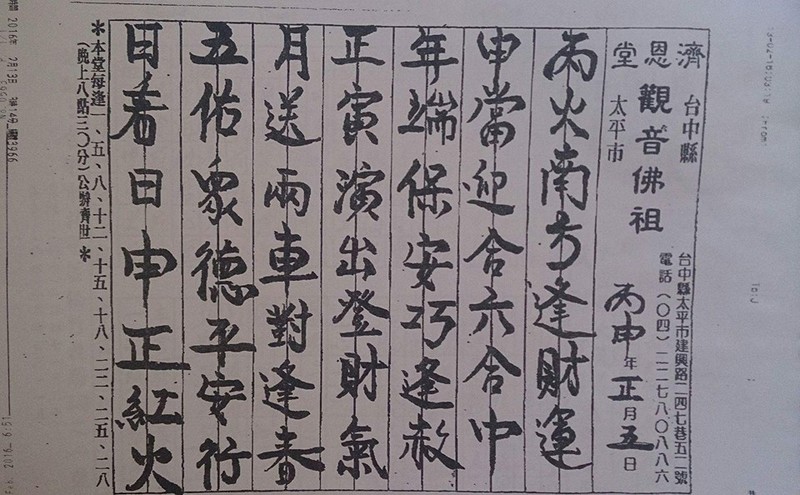 濟恩堂
台中縣
太平市
觀音佛祖
台中縣太平市建興路二四七巷五二號
電話(〇四)二二七八〇八八六
丙申年正月五日
丙火南方逢財運
申當迎合六合中
年端保安巧逢赦
正寅演出登財氣
月送兩車對逢春
五佑眾德平安行
日着日申正紅火
＊本堂每逢一、五、八、十二、十五、十八、二二、二五、二八
(晚上八點三〇分)公辦濟世＊
2016年 2月13日